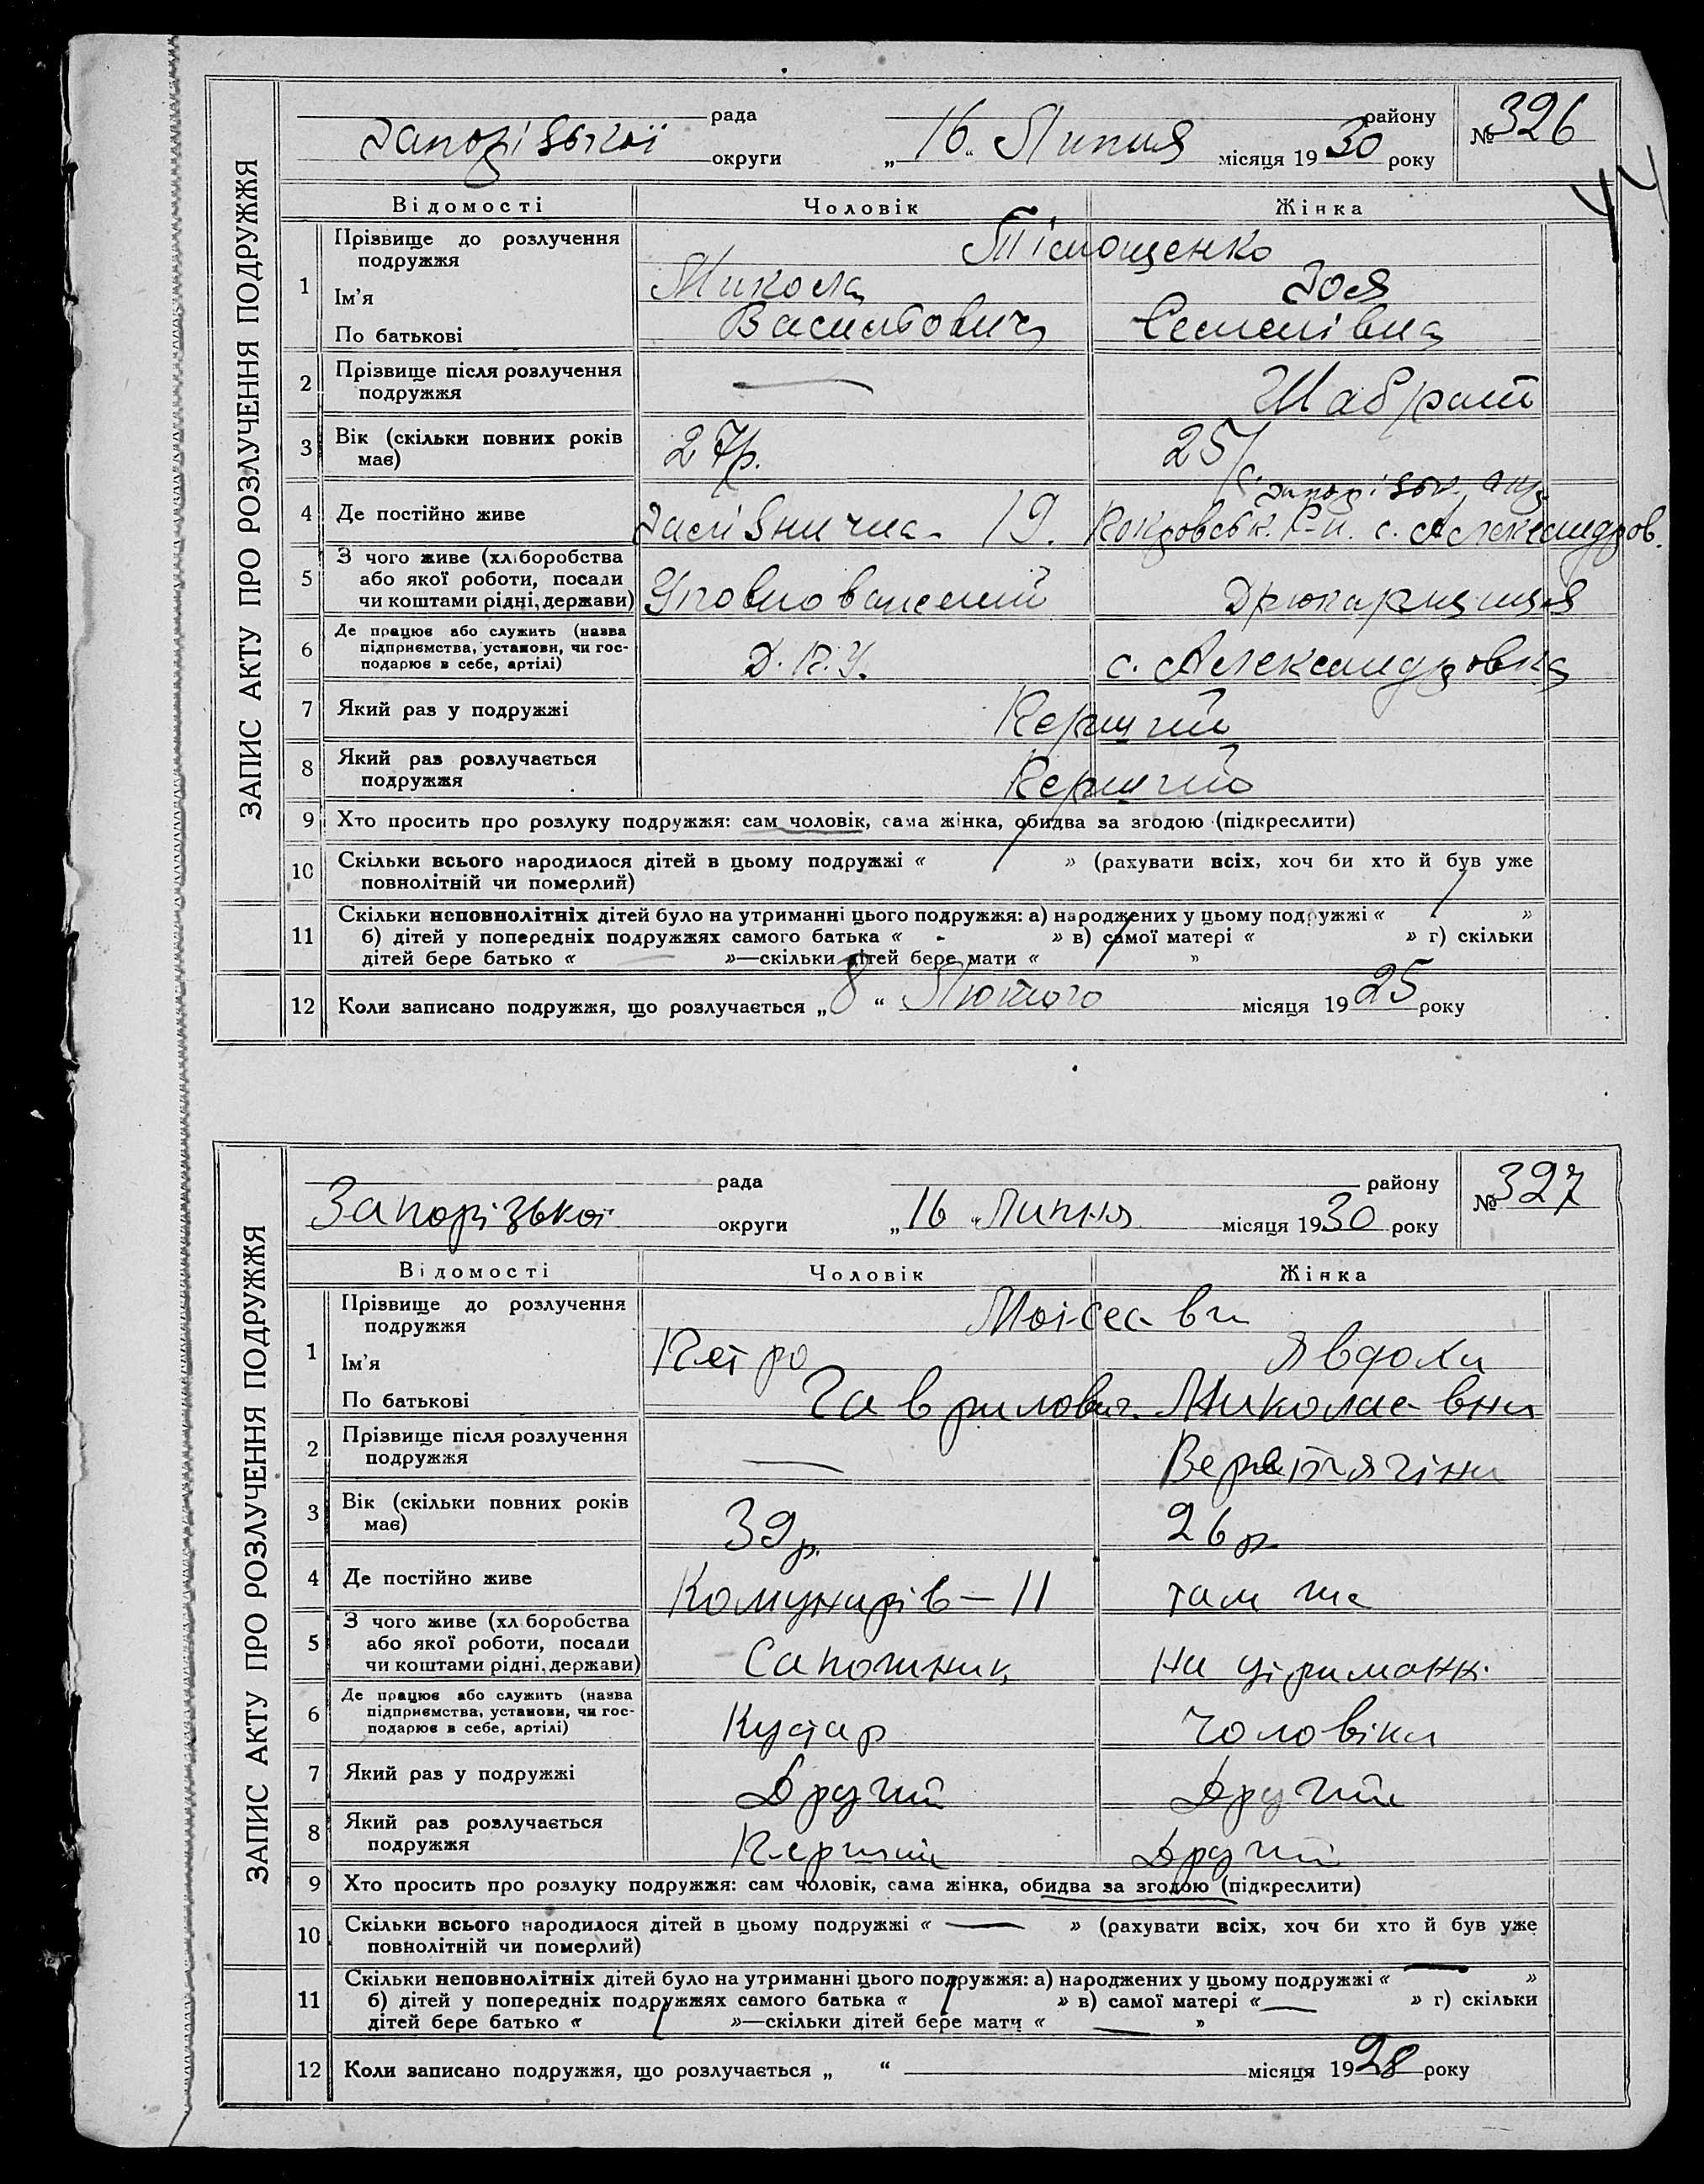 ЗАПИС АКТУ ПРО РОЗЛУЧЕННЯ ПОДРУЖЖЯ
рада району
Запорізької округи „16“ Липня місяця 1930 року № 326
44
Відомості Чоловік Жінка
1 Прізвище до розлучення подружжя Тімощенко
Ім'я Микола Зоя
По батькові Васильович Семенівна
2 Прізвище після розлучення
подружжя — Шабрат
3 Вік (скільки повних років
має) 27р. 25
с. Запорізьк. окр.
4 Де постійно живе 19. Покровськ. Р-н. с. Александров.
5 З чого живе (хліборобства
або якої роботи, посади
чи коштами рідні, держави) Уповноважений Друкарщиця
6 Де працює або служить (назва
підприємства, установи, чи гос-
подарює в себе, артілі) Д.П.У. с. Александровка
7 Який раз у подружжі Перший
8 Який раз розлучається
подружжя Перший
9 Хто просить про розлуку подружжя: сам чоловік, сама жінка, обидва за згодою (підкреслити)
10 Скільки всього народилося дітей в цьому подружжі « / » (рахувати всіх, хоч би хто й був уже
повнолітній чи померлий)
11 Скільки неповнолітніх дітей було на утриманні цього подружжя: а) народжених у цьому подружжі « / »
б) дітей у попередніх подружжях самого батька « - » в) самої матері « » г) скільки
дітей бере батько « — »—скільки дітей бере мати « »
12 Коли записано подружжя, що розлучається „8“ Лютого місяця 1925 року
ЗАПИС АКТУ ПРО РОЗЛУЧЕННЯ ПОДРУЖЖЯ
рада району
Запорізької округи „16“ Липня місяця 1930 року № 327
Відомості Чоловік Жінка
1 Прізвище до розлучення
подружжя Моісеєви
Ім'я Петро Явдоха
По батькові Гаврилович. Миколаєвна
2 Прізвище після розлучення
подружжя — Веретягіна
3 Вік (скільки повних років
має) 39р. 26р.
4 Де постійно живе Комунарів — 11 там же
5 З чого живе (хліборобства
або якої роботи, посади
чи коштами рідні, держави) Сапожник На утриманні
6 Де працює або служить (назва
підприємства, установи, чи гос-
подарює в себе, артілі) Кустар чоловіка
7 Який раз у подружжі Другий Другий
8 Який раз розлучається
подружжя Перший Другий
9 Хто просить про розлуку подружжя: сам чоловік, сама жінка, обидва за згодою (підкреслити)
10 Скільки всього народилося дітей в цьому подружжі « — » (рахувати всіх, хоч би хто й був уже
повнолітній чи померлий)
11 Скільки неповнолітніх дітей було на утриманні цього подружжя: а) народжених у цьому подружжі « — »
б) дітей у попередніх подружжях самого батька « / » в) самої матері « — » г) скільки
дітей бере батько « / »—скільки дітей бере мати « — »
12 Коли записано подружжя, що розлучається „ “ місяця 1928 року